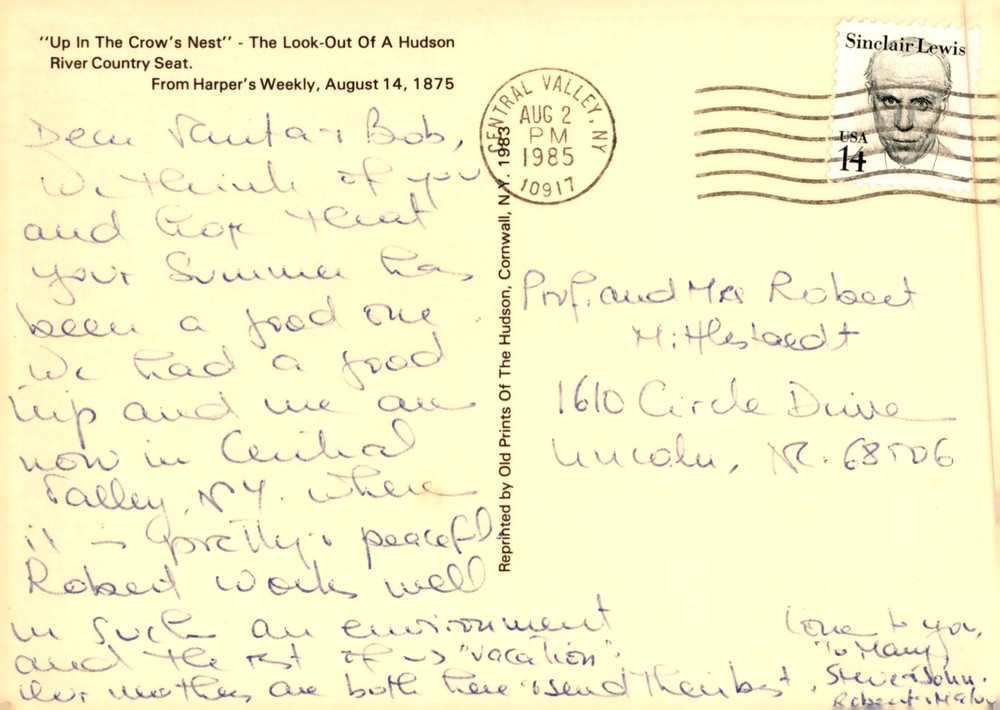 "Up In The Crow's Nest" - The Look-Out Of A Hudson
River Country Seat.
From Harper's Weekly, August 14, 1875
Dear & Bob,
We think of you
and hope that
your Summer has
been a good one.
We had a good
trip and we are
now in Central
Valley, NY. where
it is pretty & peaceful.
Robert works well
in such an environment
and the rest of us "vacation".
Our mothers are both here & send their best.
Love to you,
Mary,
Steve & John.
Robert &
Reprinted by Old Prints Of The Hudson, Cornwall, N.Y. 1983
CENTRAL VALLEY, NY
AUG 2
PM
1985
10917
Sinclair Lewis
USA
14
Prof. and Mrs Robert
Mittlestaedt
1610 Circle Drive
Lincoln, 68506